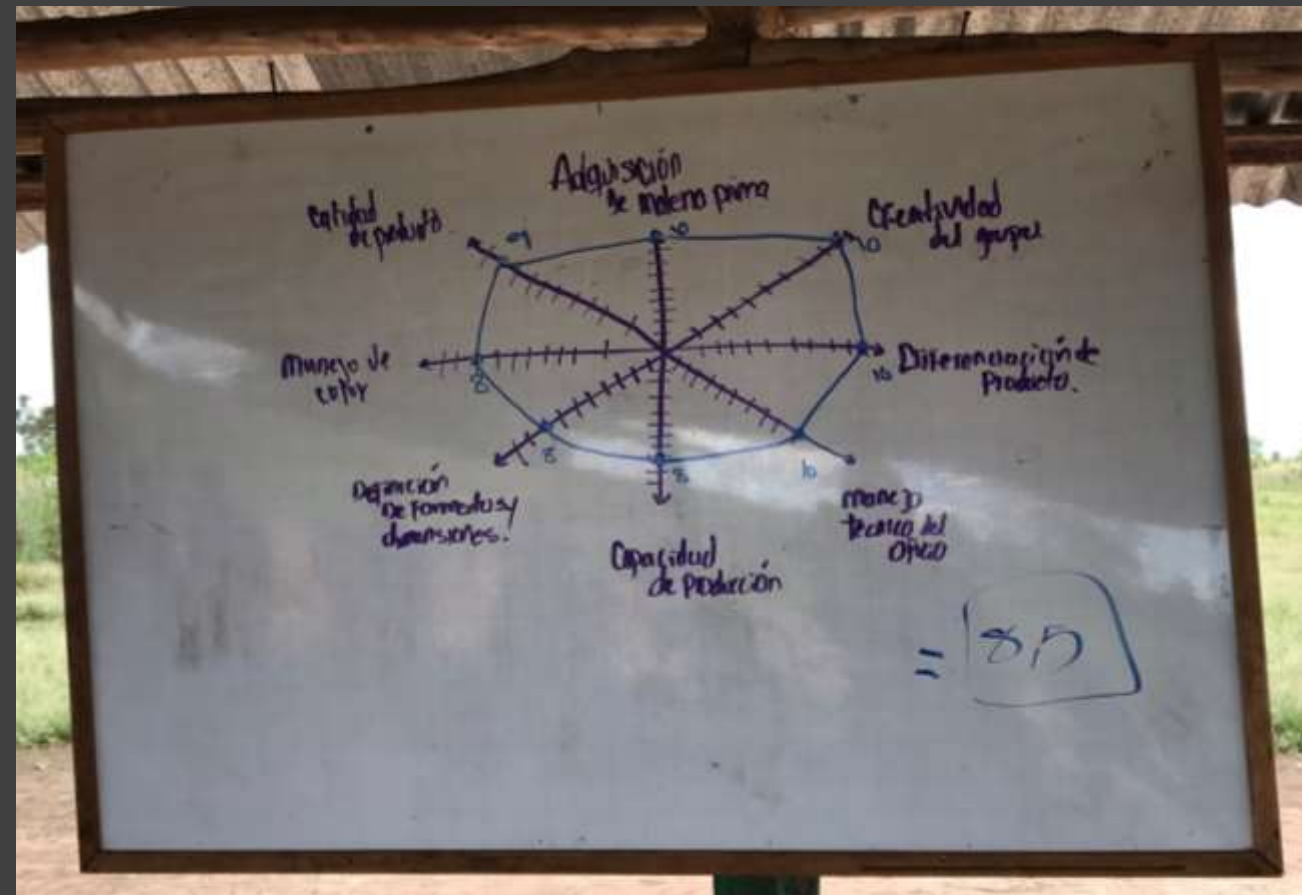 Adquisición
de materia prima
Creatividad
del grupal
10
Diferenciación de
Producto.
10
manejo
técnico del
oficio
10
Capacidad
de producción
8
Definición
De formatos y
dimensiones.
8
Manejo de
color
8
Calidad
de producto
9
= 8,5